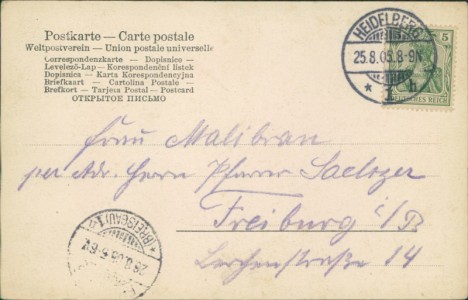 Postkarte — Carte postale
Weltpostverein — Union postale universelle
Correspondenzkarte — Dopisnice —
Levelező-Lap — Korespondenční listek
Dopisnica — Karta Korespondencyjna
Briefkaart — Cartolina Postale —
Brefkort — Tarjeta Postal — Postcard
ОТКРЫТОЕ ПИСЬМО
HEIDELBERG
25.8.05.8-9N.
* 1. h
5
DEUTSCHES REICH
Frau Malibran
per Adr. Herrn Pfarrer
Freiburg i/B
Lerchenstraße 14
(BREISGAU)
26.8.05.5-6V.